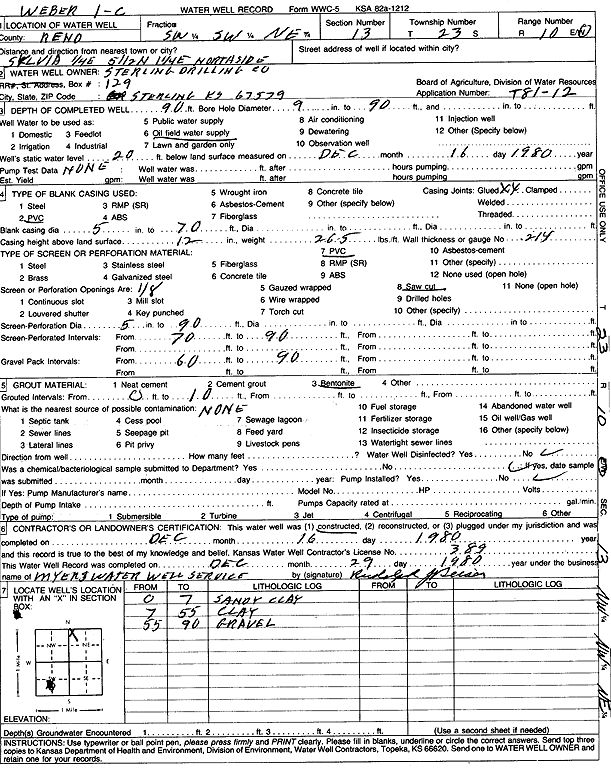 WEBER 1-C WATER WELL RECORD Form WWC-5 KSA 82a-1212
1 LOCATION OF WATER WELL Fraction Section Number Township Number Range Number
County: RENO SW ¼ SW ¼ NE ¼ 13 T 23 S R 10 E/W
Distance and direction from nearest town or city? Street address of well if located within city?
SYLVIA 1/4E 5 1/2N 1/4E NORTHSIDE
2 WATER WELL OWNER: STERLING DRILLING CO
RR#, St. Address, Box #: 129 Board of Agriculture, Division of Water Resources
City, State, ZIP Code: STERLING KS 67579 Application Number: T81-12
3 DEPTH OF COMPLETED WELL 90 ft. Bore Hole Diameter 9 in. to 90 ft., and in. to ft.
Well Water to be used as: 5 Public water supply 8 Air conditioning 11 Injection well
1 Domestic 3 Feedlot 6 Oil field water supply 9 Dewatering 12 Other (Specify below)
2 Irrigation 4 Industrial 7 Lawn and garden only 10 Observation well
Well's static water level 20 ft. below land surface measured on DEC month 16 day 1980 year
Pump Test Data NONE Well water was ft. after hours pumping gpm
Est. Yield gpm: Well water was ft. after hours pumping gpm
4 TYPE OF BLANK CASING USED: 5 Wrought iron 8 Concrete tile Casing Joints: Glued XX Clamped
1 Steel 3 RMP (SR) 6 Asbestos-Cement 9 Other (specify below) Welded
2 PVC 4 ABS 7 Fiberglass Threaded
Blank casing dia 5 in. to 70 ft., Dia in. to ft., Dia in. to ft.
Casing height above land surface 12 in., weight 265 lbs./ft. Wall thickness or gauge No 214
TYPE OF SCREEN OR PERFORATION MATERIAL: 7 PVC 10 Asbestos-cement
1 Steel 3 Stainless steel 5 Fiberglass 8 RMP (SR) 11 Other (specify)
2 Brass 4 Galvanized steel 6 Concrete tile 9 ABS 12 None used (open hole)
Screen or Perforation Openings Are: 1/8 5 Gauzed wrapped 8 Saw cut 11 None (open hole)
1 Continuous slot 3 Mill slot 6 Wire wrapped 9 Drilled holes
2 Louvered shutter 4 Key punched 7 Torch cut 10 Other (specify)
Screen-Perforation Dia 5 in. to 90 ft., Dia in. to ft., Dia in. to ft.
Screen-Perforated Intervals: From 70 ft. to 90 ft., From ft. to ft.
From ft. to ft., From ft. to ft.
Gravel Pack Intervals: From 60 ft. to 90 ft., From ft. to ft.
From ft. to ft., From ft. to ft.
5 GROUT MATERIAL: 1 Neat cement 2 Cement grout 3 Bentonite 4 Other
Grouted Intervals: From 0 ft. to 10 ft., From ft. to ft., From ft. to ft.
What is the nearest source of possible contamination: NONE 10 Fuel storage 14 Abandoned water well
1 Septic tank 4 Cess pool 7 Sewage lagoon 11 Fertilizer storage 15 Oil well/Gas well
2 Sewer lines 5 Seepage pit 8 Feed yard 12 Insecticide storage 16 Other (specify below)
3 Lateral lines 6 Pit privy 9 Livestock pens 13 Watertight sewer lines
Direction from well How many feet ? Water Well Disinfected? Yes No
Was a chemical/bacteriological sample submitted to Department? Yes No If yes, date sample
was submitted month day year: Pump Installed? Yes No
If Yes: Pump Manufacturer's name Model No. HP Volts
Depth of Pump Intake ft. Pumps Capacity rated at gal./min.
Type of pump: 1 Submersible 2 Turbine 3 Jet 4 Centrifugal 5 Reciprocating 6 Other
6 CONTRACTOR'S OR LANDOWNER'S CERTIFICATION: This water well was (1) constructed, (2) reconstructed, or (3) plugged under my jurisdiction and was
completed on DEC month 16 day 1980 year
and this record is true to the best of my knowledge and belief. Kansas Water Well Contractor's License No. 389
This Water Well Record was completed on DEC month 29 day 1980 year under the business
name of MYERS WATER WELL SERVICE by (signature)
7 LOCATE WELL'S LOCATION WITH AN "X" IN SECTION BOX:
FROM TO LITHOLOGIC LOG FROM TO LITHOLOGIC LOG
0 7 SANDY CLAY
7 55 CLAY
55 90 GRAVEL
N
NW NE
W E
SW SE
S
1 Mile
1 Mile
X
ELEVATION:
Depth(s) Groundwater Encountered 1 ft. 2 ft. 3 ft. 4 ft. (Use a second sheet if needed)
INSTRUCTIONS: Use typewriter or ball point pen, please press firmly and PRINT clearly. Please fill in blanks, underline or circle the correct answers. Send top three
copies to Kansas Department of Health and Environment, Division of Environment, Water Well Contractors, Topeka, KS 66620. Send one to WATER WELL OWNER and
retain one for your records.
OFFICE USE ONLY
T 23
R 10 E/W
SEC. 13
NW ¼ NW ¼ NE ¼